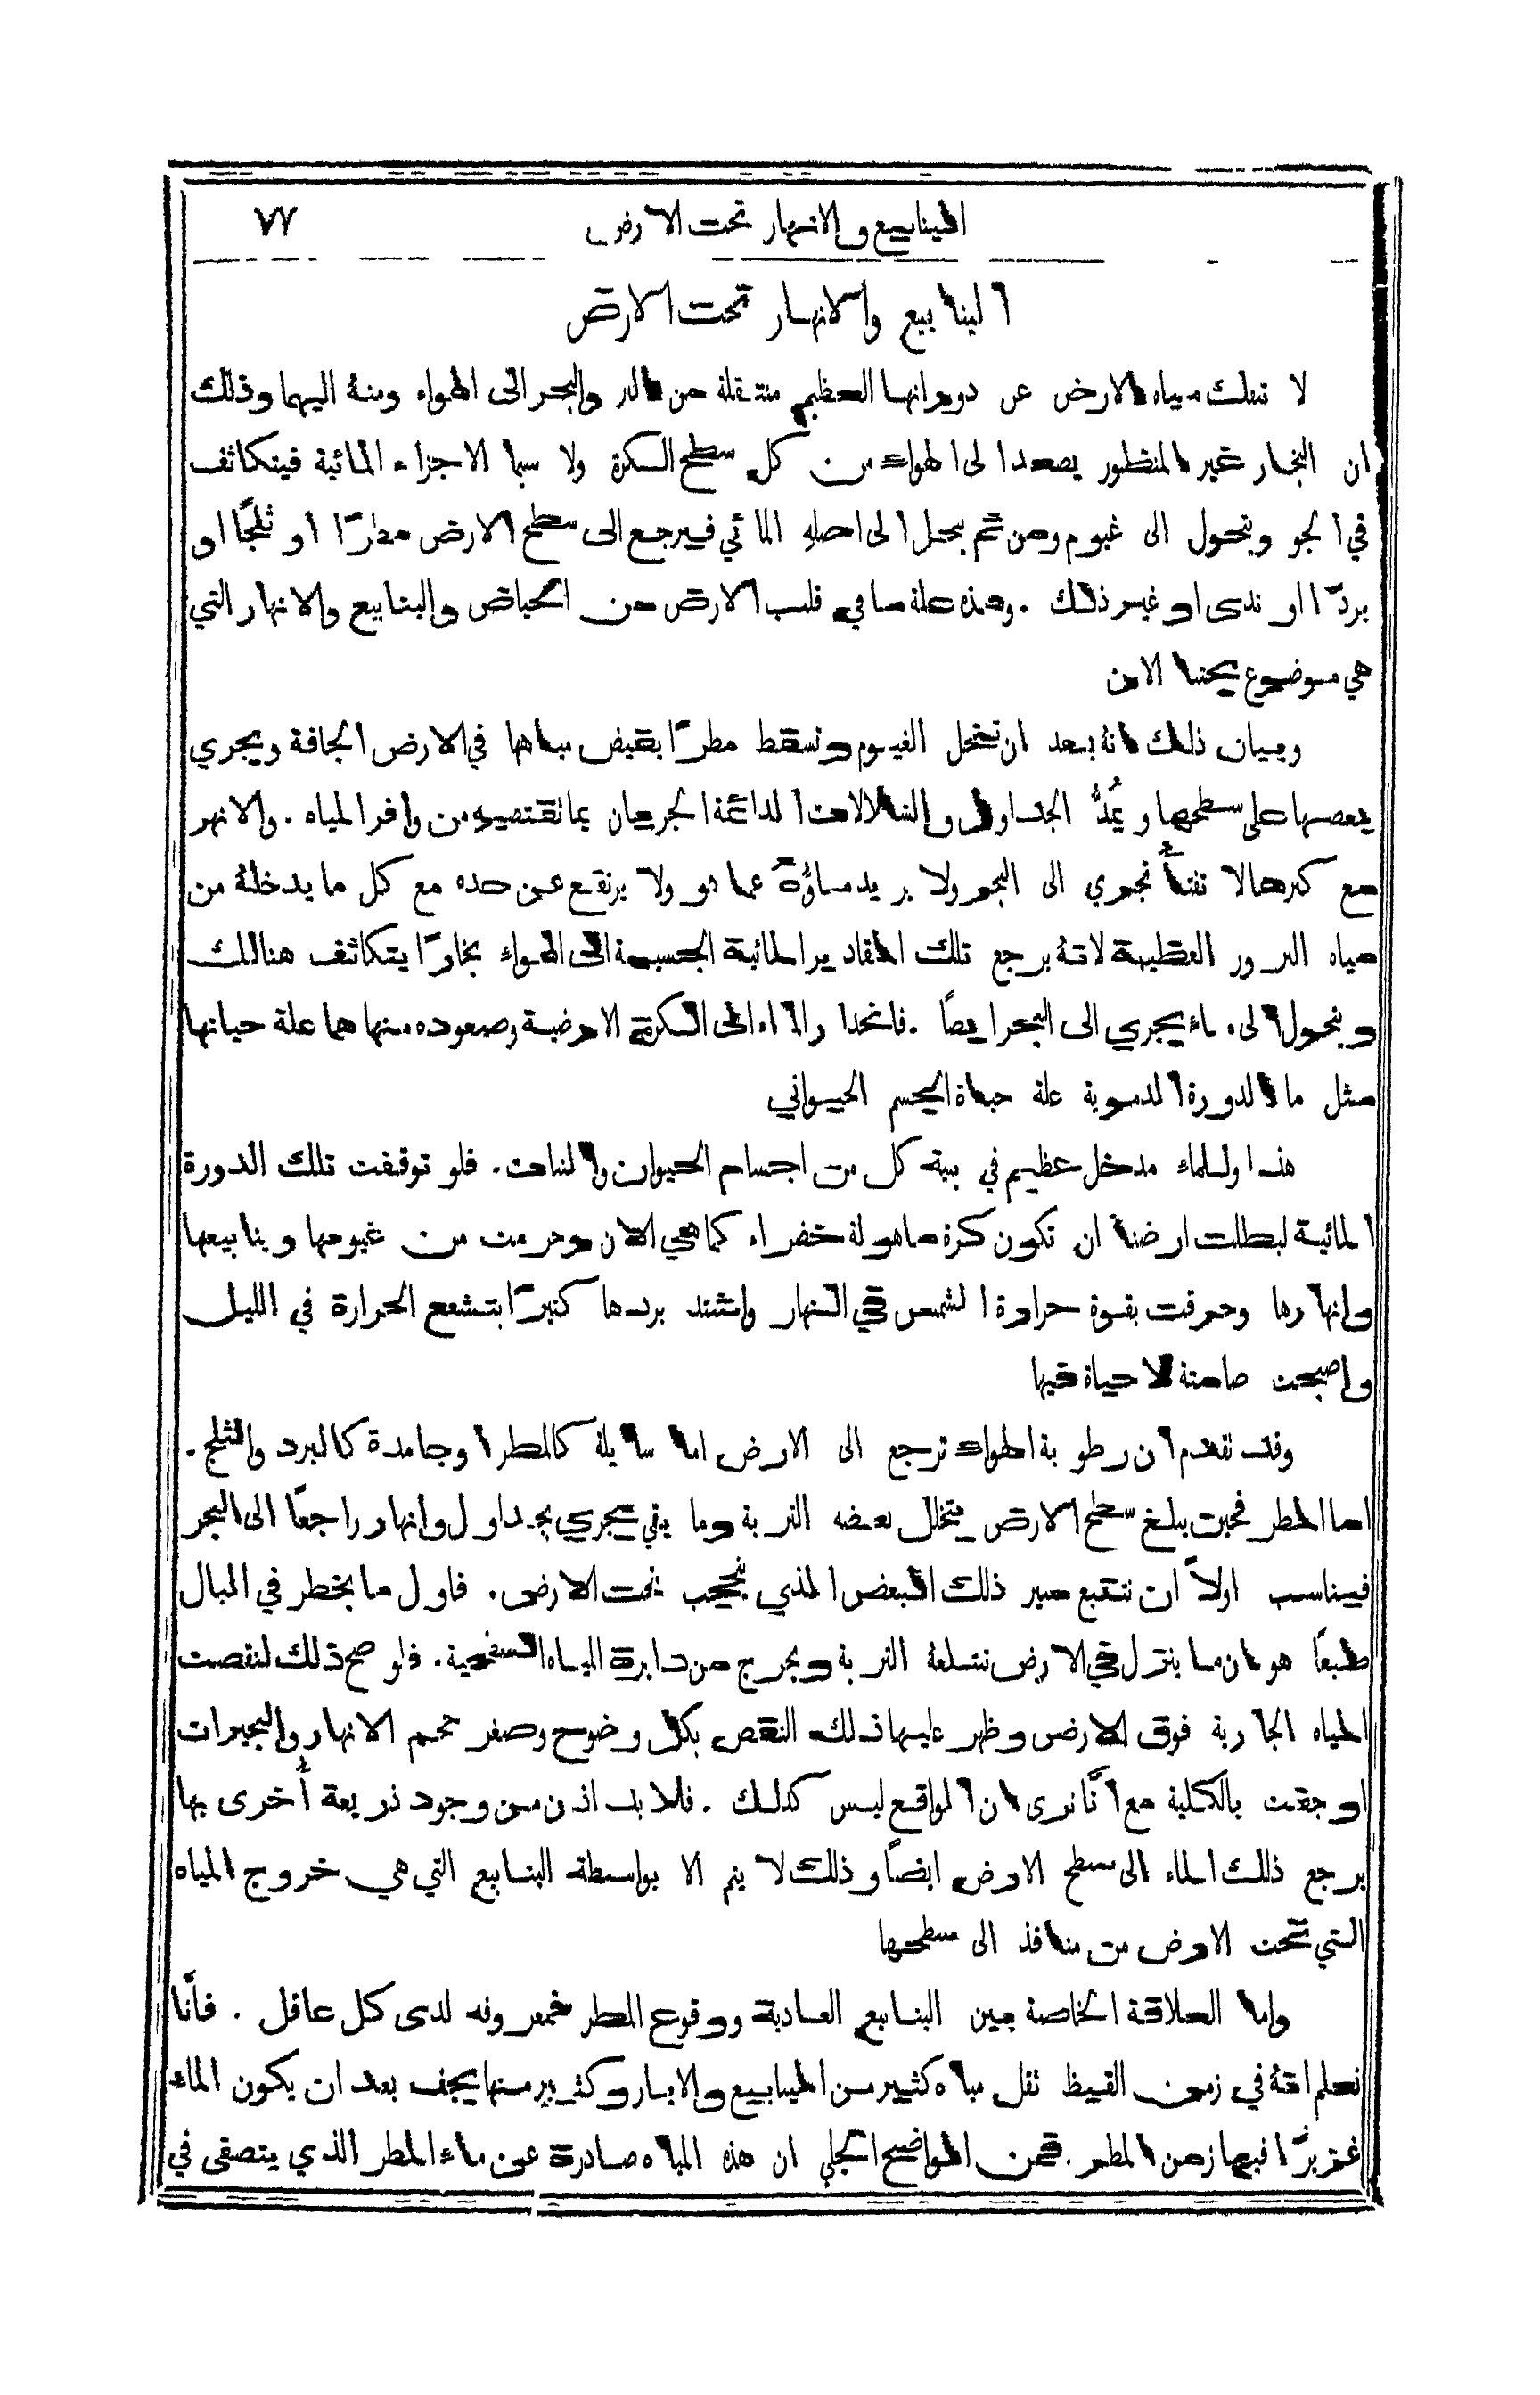 الينابيع والانهار تحت الارض ٧٧
الينابيع والانهار تحت الارض
لا تنفك مياه الارض عن دورانها العظيم منتقلة من البر والبحر الى الهواء ومنهُ اليهما وذلك
ان البخار غير المنظور يصعد الى الهواء من كل سطح الكرة ولا سيما الاجزاء المائية فيتكاثف
في الجو ويتحول الى غيوم ومن ثم ينحل الى اصلهِ المائي فيرجع الى سطح الارض مطرًا او ثلجًا او
بردًا او ندى او غير ذلك . وهذه علة ما في قلب الارض من الحياض والينابيع والانهار التي
هي موضوع بحثنا الان
وبيان ذلك انهُ بعد ان تنحل الغيوم وتسقط مطرًا يفيض مياهها في الارض الجافة ويجري
بعضها على سطحها ويُمدُّ الجداول والشلالات الدائمة الجريان بما تقتضيه من وافر المياه . والانهر
مع كبرها لا تفتأُ تجري الى البحر ولا يزيد ماؤهُ عما هو ولا يرتفع عن حده مع كل ما يدخلهُ من
مياه البرور العظيمة لانهُ يرجع تلك المقادير المائية الجسيمة الى الهواء بخارًا يتكاثف هنالك
ويتحول الى ماءٍ يجري الى البحر ايضًا . فانحدار الماء الى الكرة الارضية وصعوده منها هما علة حياتها
مثل ما الدورة الدموية علة حياة الجسم الحيواني
هذا وللماء مدخل عظيم في بنية كل من اجسام الحيوان والنبات . فلو توقفت تلك الدورة
المائية لبطلت ارضنا ان تكون كرة ماهولة خضراء كما هي الان وحرمت من غيومها وينابيعها
وانهارها وحرقت بقوة حرارة الشمس في النهار واشتد بردها كثيرًا بتشعع الحرارة في الليل
واصبحت صامتة لا حياة فيها
وقد تقدم ان رطوبة الهواء ترجع الى الارض اما سايلة كالمطر او جامدة كالبرد والثلج .
اما المطر فحين يبلغ سطح الارض يتخلل بعضه التربة وما بقي يجري بجداول وانهار راجعًا الى البحر
فيناسب اولاً ان نتتبع سير ذلك البعض الذي يحتجب تحت الارض . فاول ما يخطر في البال
طبعًا هو ان ما ينزل في الارض تبتلعهُ التربة ويخرج من دايرة المياه السفحية . فلو صح ذلك لنقصت
المياه الجارية فوق الارض وظهر عليها ذلك النقص بكل وضوح وصغر حجم الانهار والبحيرات
او جفت بالكلية مع انَّا نرى ان الواقع ليس كذلك . فلا بد اذن من وجود ذريعة أُخرى بها
يرجع ذلك الماء الى سطح الارض ايضًا وذلك لا يتم الا بواسطة الينابيع التي هي خروج المياه
التي تحت الارض من منافذ الى سطحها
واما العلاقة الخاصة بين الينابيع العادية ووقوع المطر فمعروفه لدى كل عاقل . فانَّا
نعلم انهُ في زمن القيظ تقل مياه كثير من الينابيع والابار وكثير منها يجف بعد ان يكون الماء
غزيرًا فيها زمن المطر . فمن الواضح الجلي ان هذه المياه صادرة عن ماء المطر الذي يتصفى في